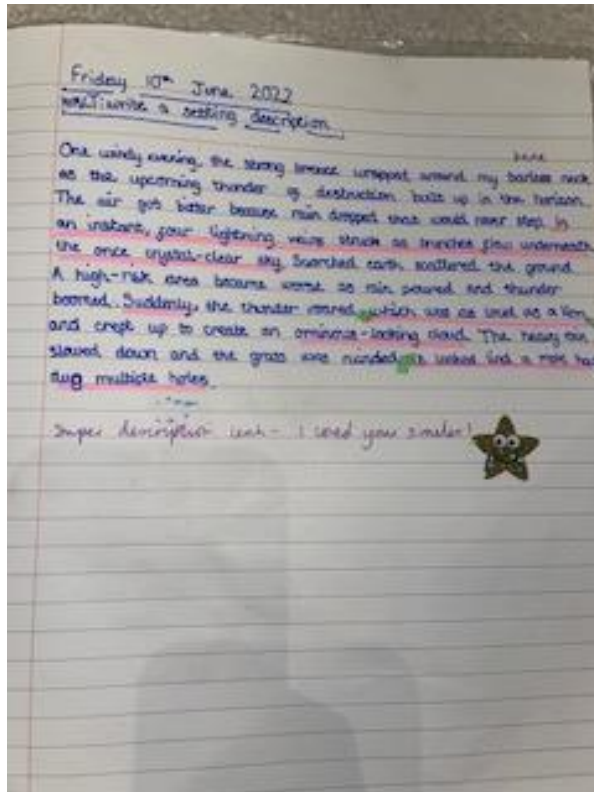 Friday 10th June 2022
WALT: write a setting description.
bare
One windy evening, the strong breeze wrapped around my neck
as the upcoming thunder of destruction built up in the horizon.
The air got bitter because rain dropped that would never stop. In
an instant, four lightning veins struck as branches flow underneath
the once crystal-clear sky. Scorched earth scattered the ground.
A high-risk area became worst as rain poured and thunder
boomed. Suddenly, the thunder roared which was as loud as a lion
and crept up to create an ominous-looking cloud. The heavy rain
slowed down and the grass was it looked like a mole had
dug multiple holes.
Super description - I loved your similes!